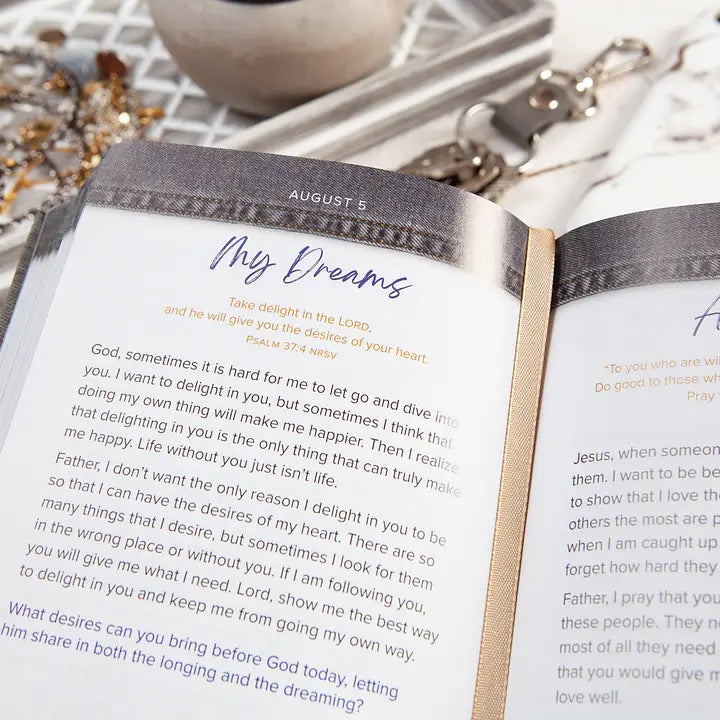 AUGUST 5
My Dreams
Take delight in the LORD,
and he will give you the desires of your heart.
PSALM 37:4 NRSV
God, sometimes it is hard for me to let go and dive into
you. I want to delight in you, but sometimes I think that
doing my own thing will make me happier. Then I realize
that delighting in you is the only thing that can truly make
me happy. Life without you just isn’t life.
Father, I don’t want the only reason I delight in you to be
so that I can have the desires of my heart. There are so
many things that I desire, but sometimes I look for them
in the wrong place or without you. If I am following you,
you will give me what I need. Lord, show me the best way
to delight in you and keep me from going my own way.
What desires can you bring before God today, letting
him share in both the longing and the dreaming?
“To you who are
Do good to those
Pray
Jesus, when
them. I want to be
to show that I love
others the most are
when I am caught up
forget how hard they
Father, I pray that you
these people. They
most of all they need
that you would give
love well.